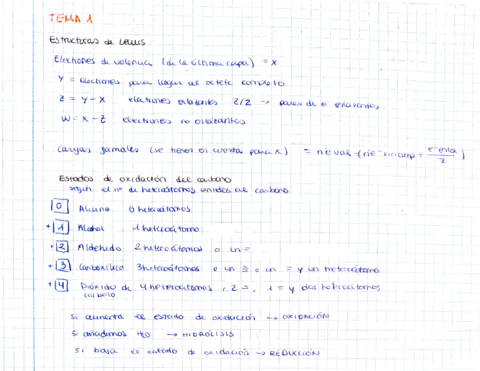 TEMA 1
Estructuras de Lewis
Electrones de valencia (de la última capa) = X
Y = electrones para llegar al octete completo
Z = Y - X electrones enlazantes Z/2 → pares de e⁻ enlazantes
W = X - Z electrones no enlazantes
Cargas formales (se tienen en cuenta para X) = nºe⁻val - (nºe⁻ sin comp + e⁻enla/2)
Estados de oxidación del carbono
según el nº de heteroátomos unidos al carbono
0 Alcano 0 heteroátomos
+ 1 Alcohol 1 heteroátomo
+ 2 Aldehído 2 heteroátomos o un =
+ 3 Carboxílico 3 heteroátomos o un ≡ o un = y un heteroátomo
+ 4 Dióxido de 4 heteroátomos, 2 =, 1 = y dos heteroátomos
carbono
si aumenta el estado de oxidación → OXIDACIÓN
si añadimos H₂O → HIDRÓLISIS
si baja el estado de oxidación → REDUCCIÓN